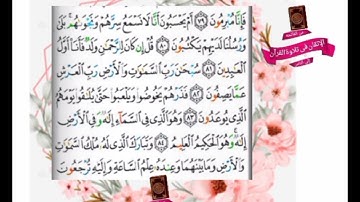 فَإِنَّا مُبْرِمُونَ ٧٩ أَمْ يَحْسَبُونَ أَنَّا لَا نَسْمَعُ سِرَّهُمْ وَنَجْوَىٰهُم بَلَىٰ
وَرُسُلُنَا لَدَيْهِمْ يَكْتُبُونَ ٨٠ قُلْ إِن كَانَ لِلرَّحْمَٰنِ وَلَدٌ فَأَنَا أَوَّلُ
الْعَٰبِدِينَ ٨١ سُبْحَٰنَ رَبِّ السَّمَٰوَٰتِ وَالْأَرْضِ رَبِّ الْعَرْشِ
عَمَّا يَصِفُونَ ٨٢ فَذَرْهُمْ يَخُوضُوا وَيَلْعَبُوا حَتَّىٰ يُلَٰقُوا يَوْمَهُمُ
الَّذِي يُوعَدُونَ ٨٣ وَهُوَ الَّذِي فِي السَّمَاءِ إِلَٰهٌ وَفِي الْأَرْضِ
إِلَٰهٌ وَهُوَ الْحَكِيمُ الْعَلِيمُ ٨٤ وَتَبَارَكَ الَّذِي لَهُ مُلْكُ السَّمَٰوَٰتِ
وَالْأَرْضِ وَمَا بَيْنَهُمَا وَعِندَهُ عِلْمُ السَّاعَةِ وَإِلَيْهِ تُرْجَعُونَ
الإتقان في تلاوة القرآن